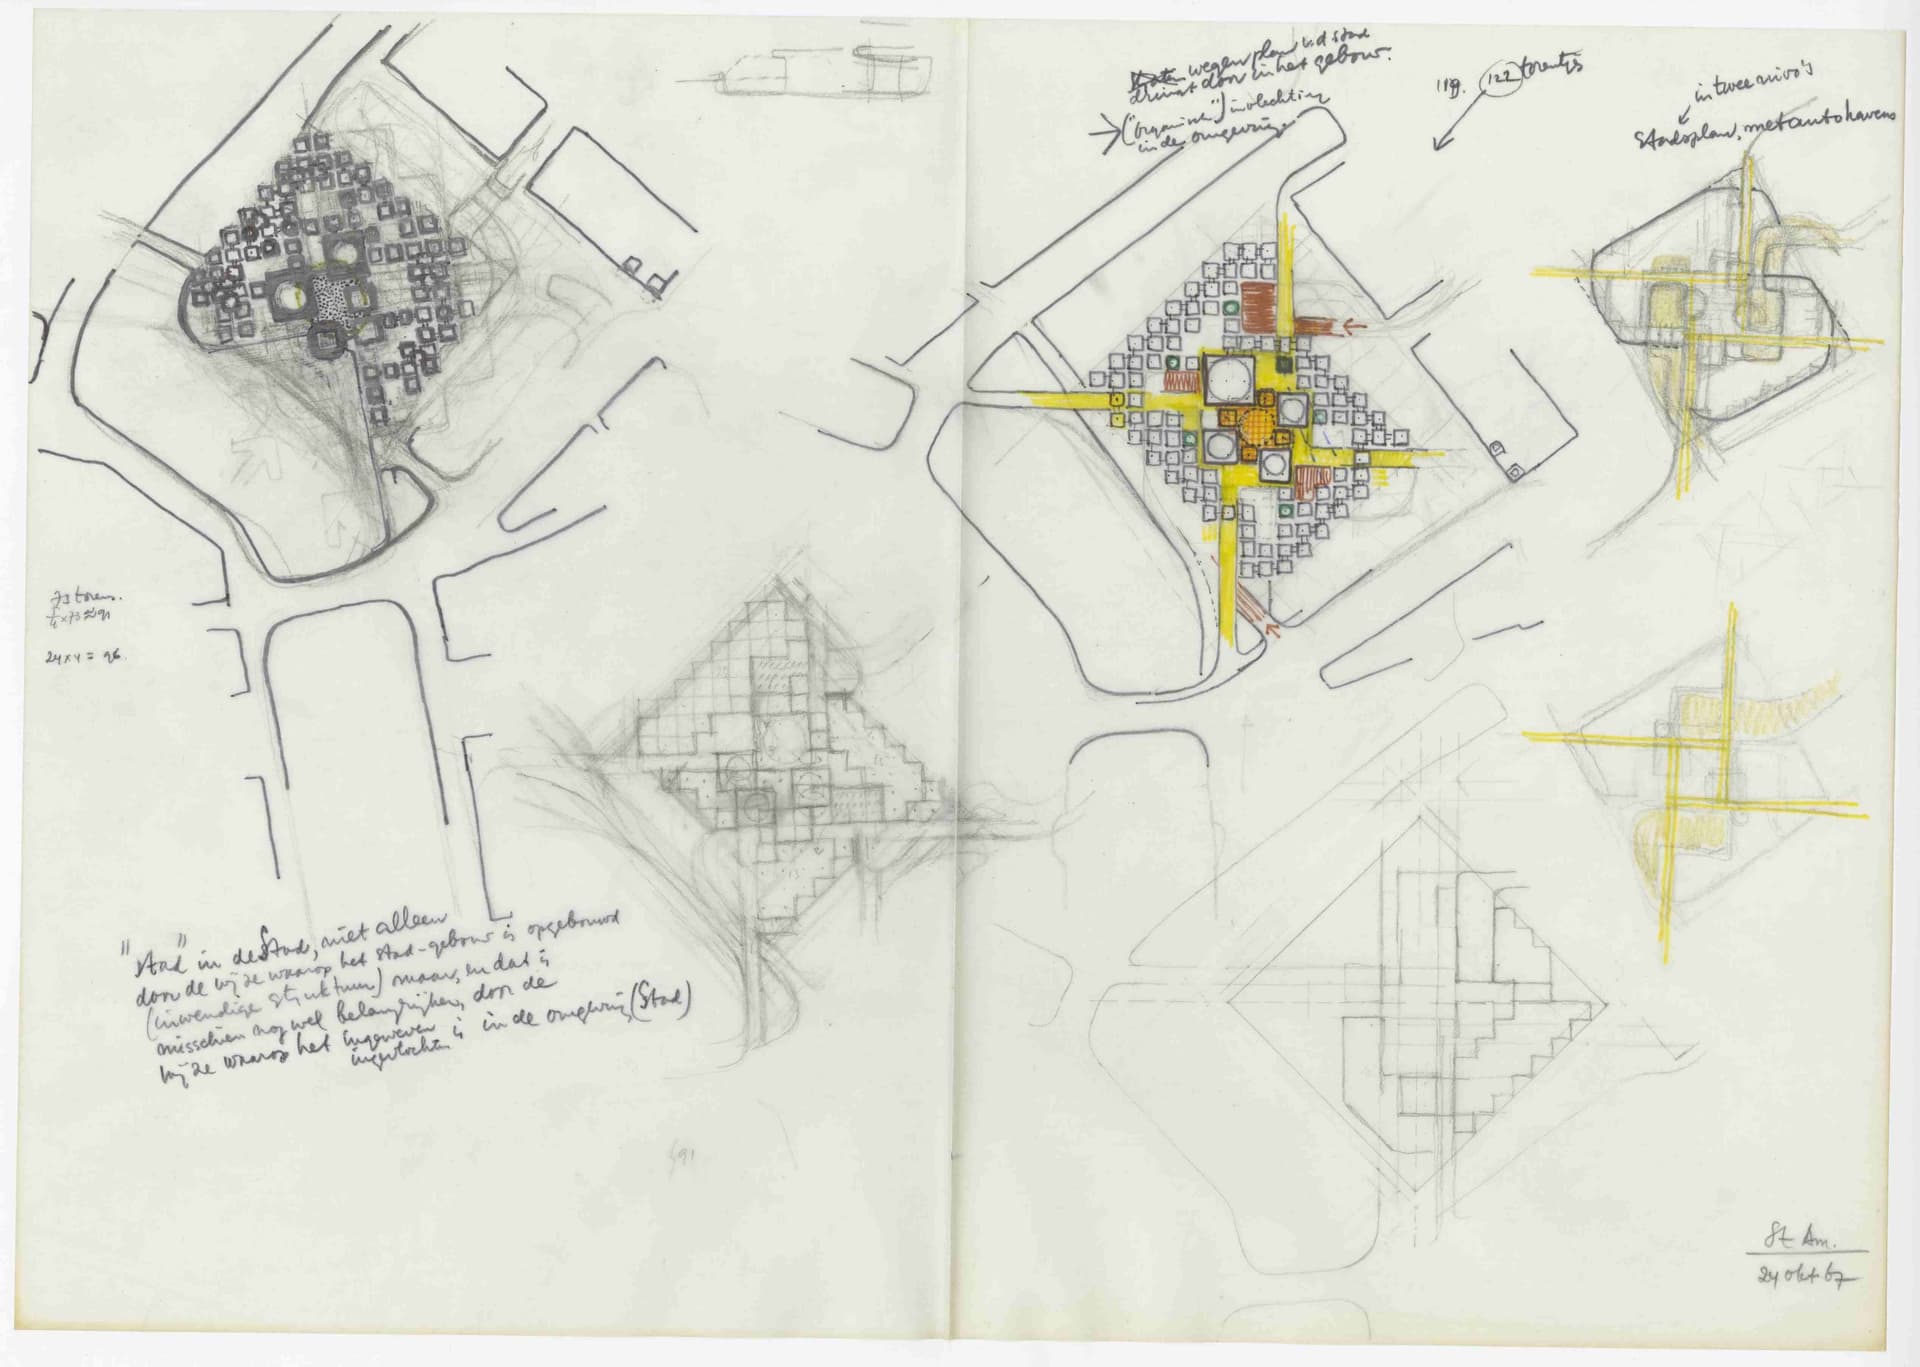 wegenplan v.d stad
dringt door in het gebouw.
("organisch") invlechting
in de omgeving
119. 122 torentjes
in twee nivo's
Stadsplan, met autohavens
73 torens.
24 x 4 = 96.
"Stad" in de Stad, niet alleen
door de wijze waarop het stad-gebouw is opgebouwd
(inwendige struktuur) maar, en dat is
misschien nog wel belangrijker, door de
wijze waarop het ingeweven is in de omgeving (Stad)
ingevlochten
St Am.
24 okt 67